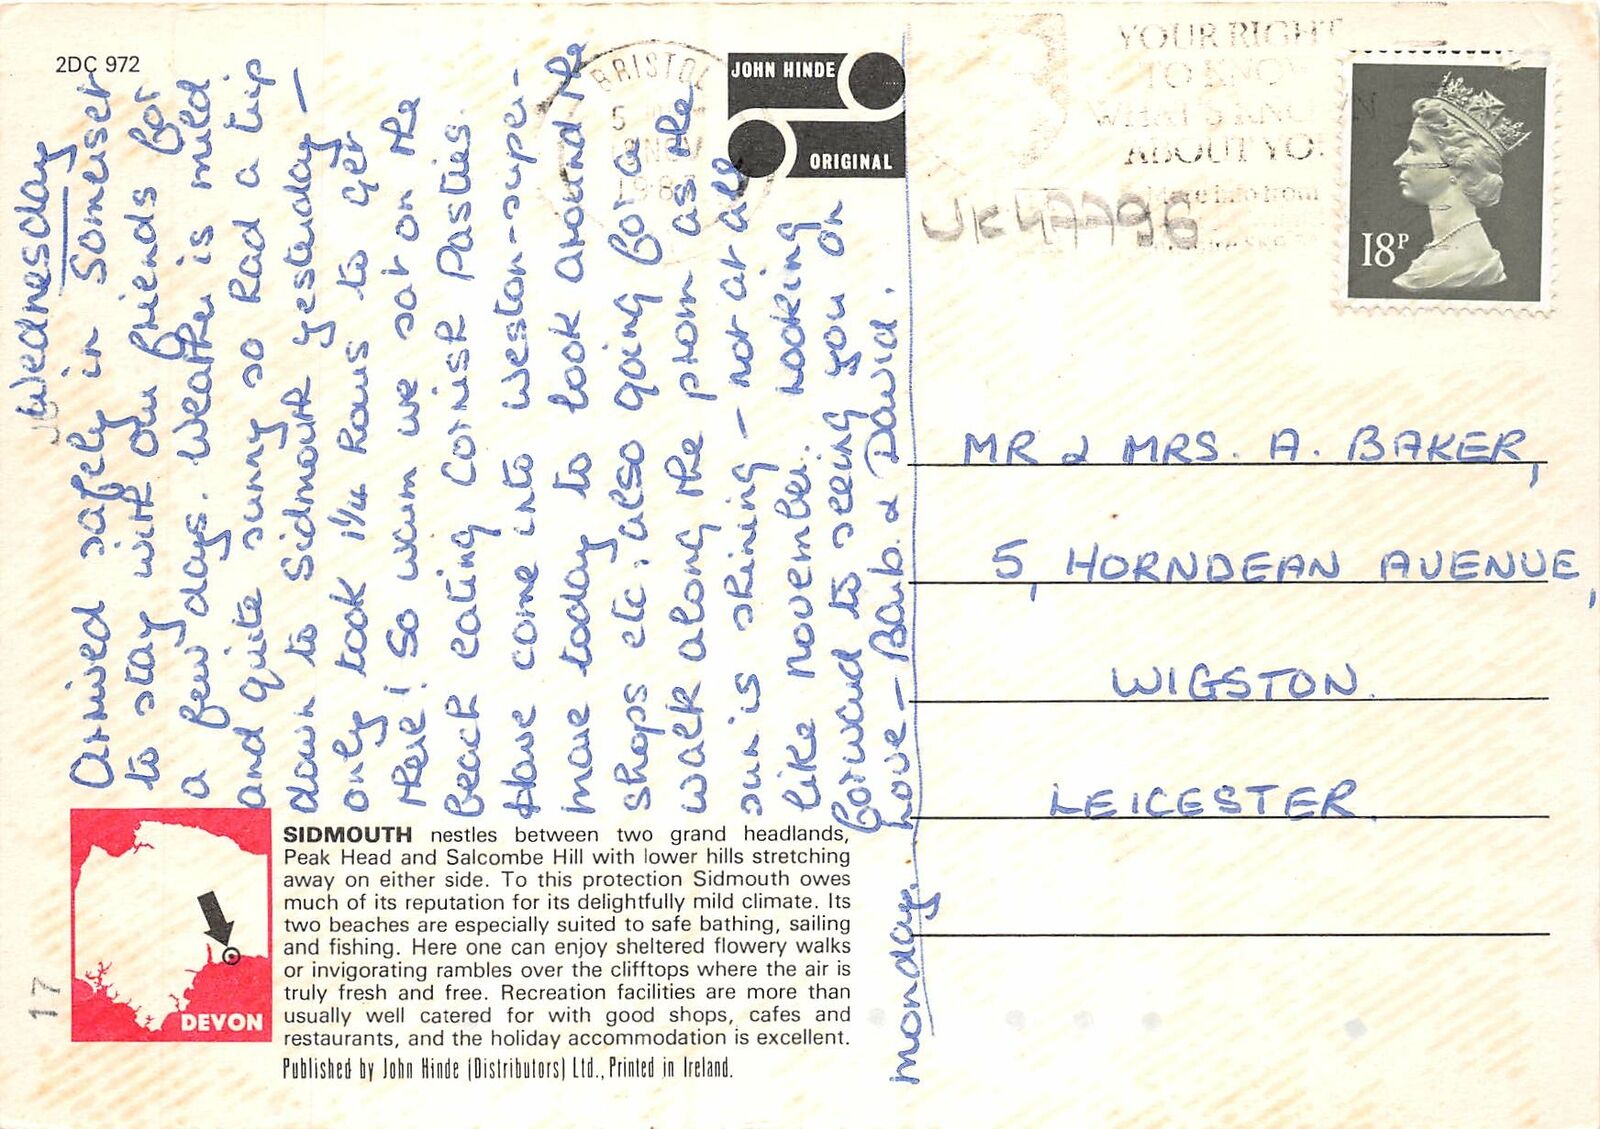 2DC 972
Wednesday
Arrived safely in Somerset
to stay with our friends for
a few days. Weather is mild
and quite sunny so had a trip
down to Sidmouth yesterday —
only took 1¼ hours to get
there! So warm we sat on the
beach eating Cornish Pasties.
Have come into Weston-super-
mare today to look around the
shops etc. also going for a
walk along the prom as the
sun is shining — not at all
like November. Looking
forward to seeing you on
Monday. Love — Barb & David.
JOHN HINDE
ORIGINAL
BRISTOL
5
NOV
198
YOUR RIGHT
TO
WHAT'S
ABOUT
UK47796
18P
MR & MRS. A. BAKER,
5, HORNDEAN AVENUE,
WIGSTON.
LEICESTER.
DEVON
SIDMOUTH nestles between two grand headlands,
Peak Head and Salcombe Hill with lower hills stretching
away on either side. To this protection Sidmouth owes
much of its reputation for its delightfully mild climate. Its
two beaches are especially suited to safe bathing, sailing
and fishing. Here one can enjoy sheltered flowery walks
or invigorating rambles over the clifftops where the air is
truly fresh and free. Recreation facilities are more than
usually well catered for with good shops, cafes and
restaurants, and the holiday accommodation is excellent.
Published by John Hinde (Distributors) Ltd., Printed in Ireland.
17